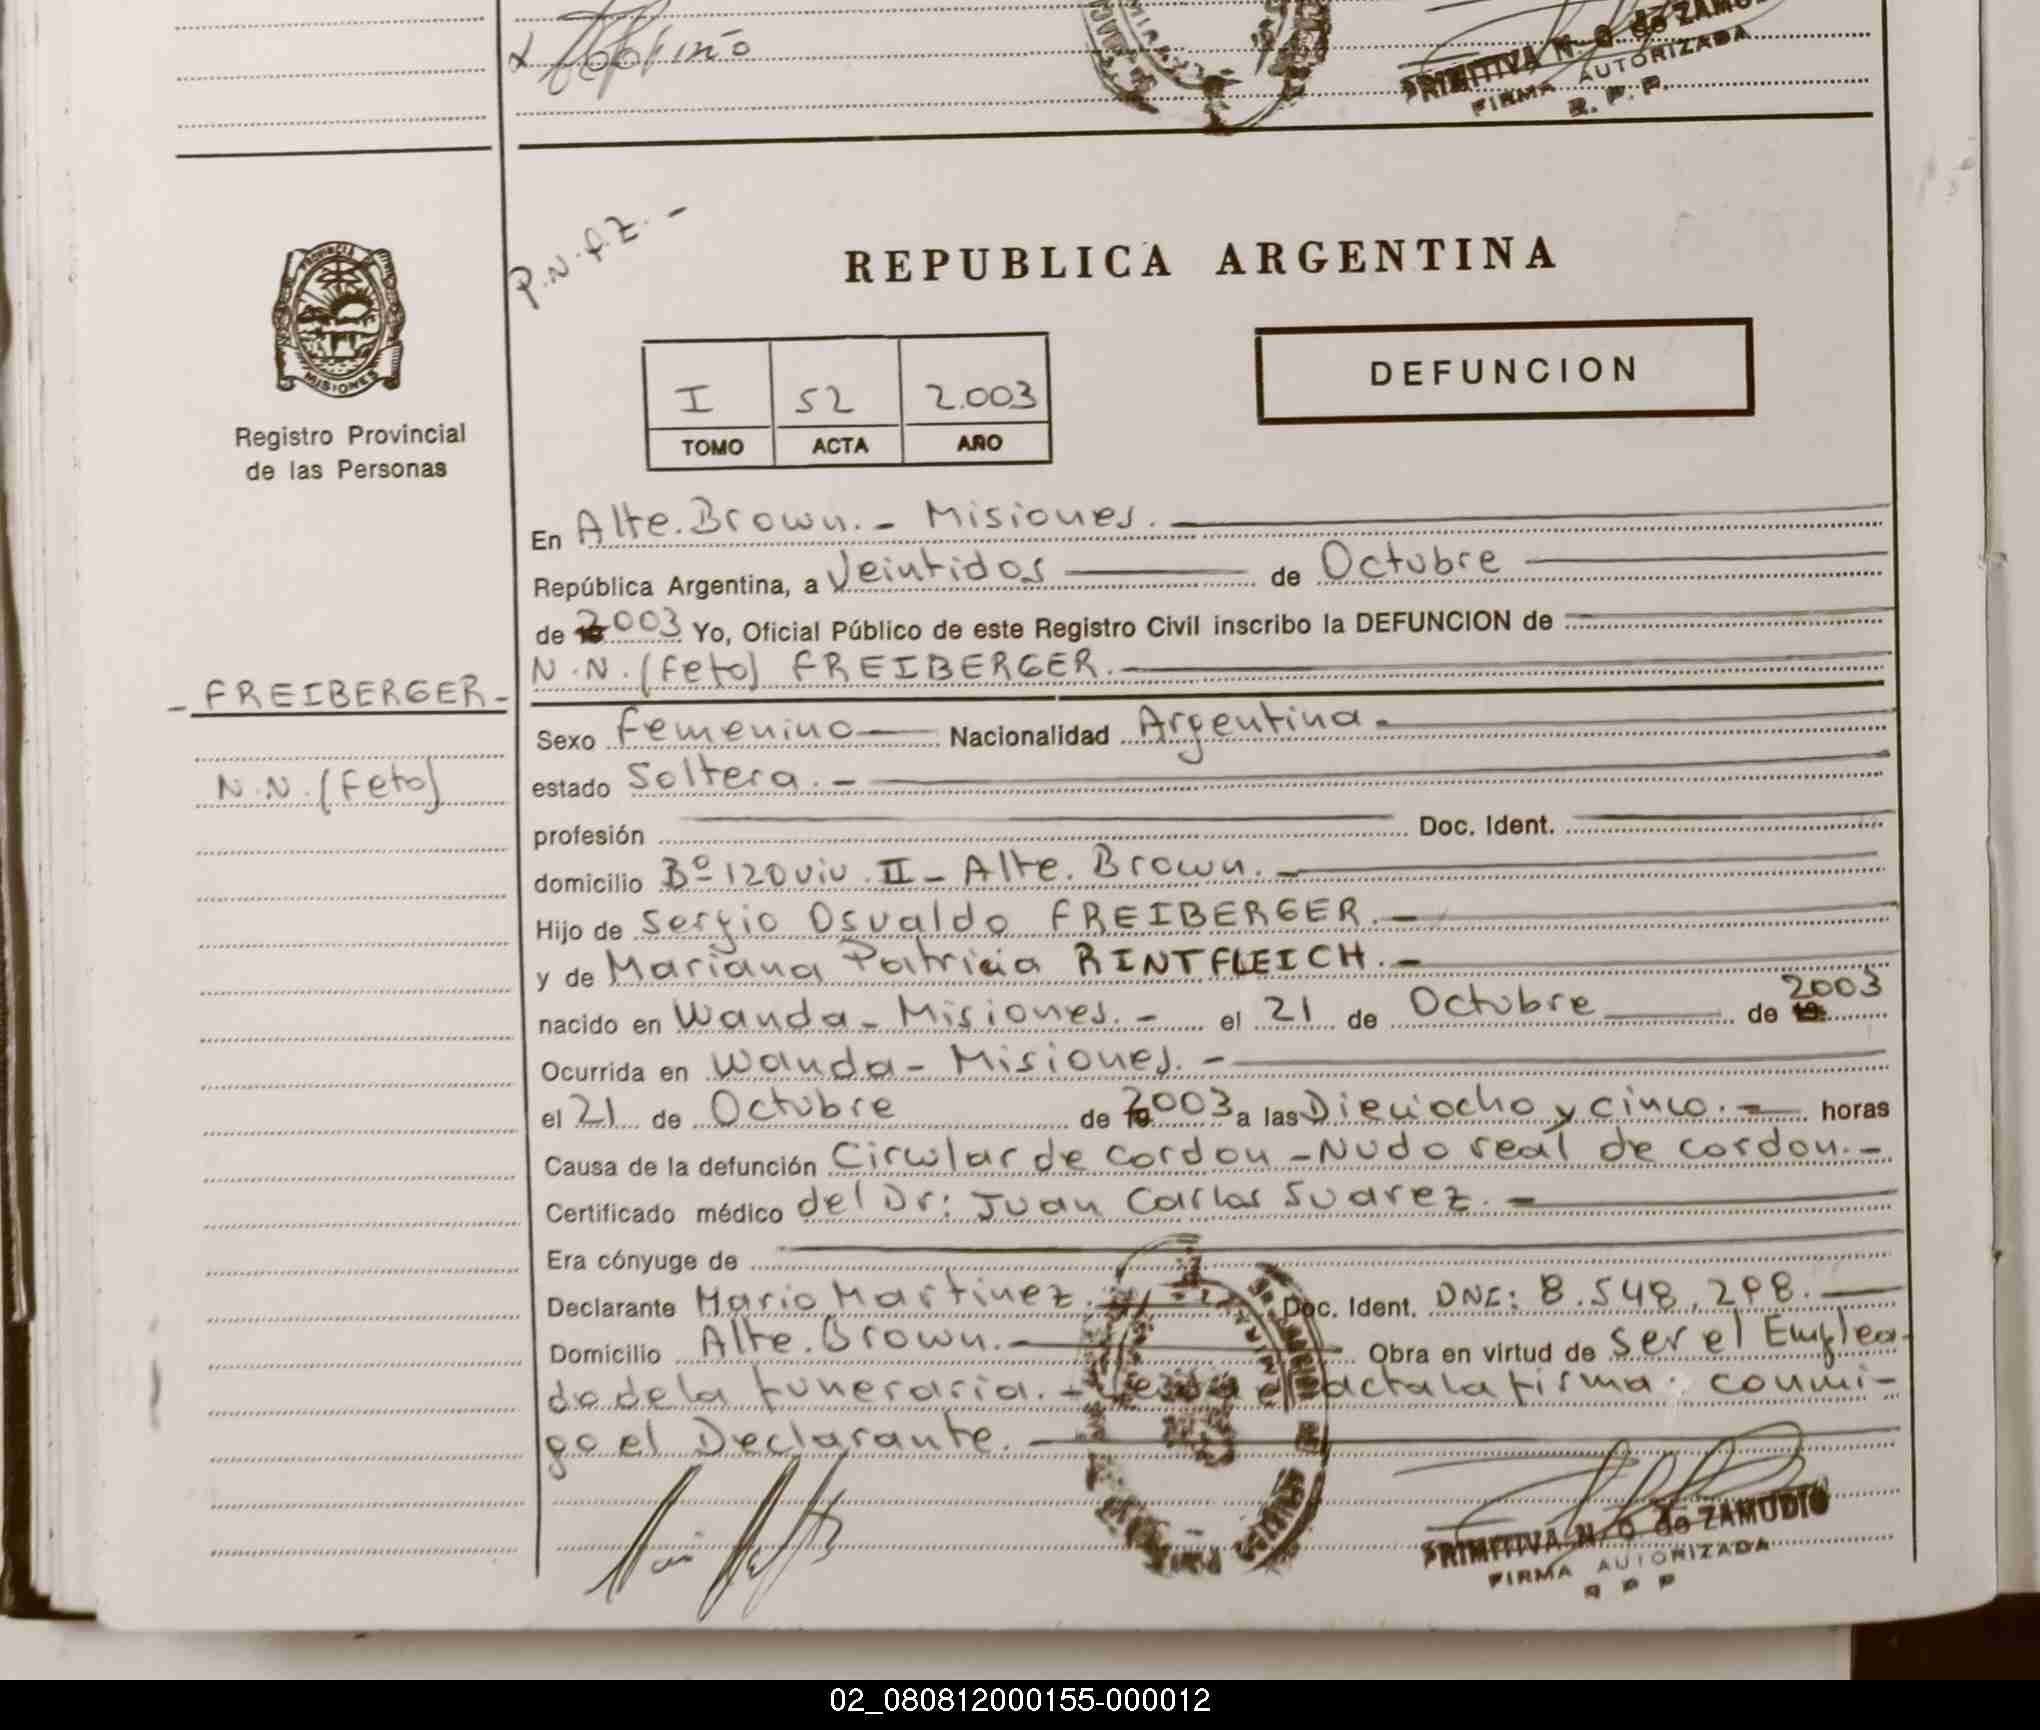 PRIMITIVA N. G. de ZAMUDIO
FIRMA AUTORIZADA
R. P. P.
PROVINCIA
MISIONES
Registro Provincial
de las Personas
P.N.A.Z. -
REPUBLICA ARGENTINA
I 52 2.003
TOMO ACTA AÑO
DEFUNCION
En Alte. Brown. - Misiones.
República Argentina, a Veintidos de Octubre
de 2003 Yo, Oficial Público de este Registro Civil inscribo la DEFUNCION de
N.N. (Feto) FREIBERGER.
- FREIBERGER -
N.N. (Feto)
Sexo Femenino Nacionalidad Argentina.
estado Soltera. -
profesión Doc. Ident.
domicilio Bº 120 viv. II - Alte. Brown. -
Hijo de Sergio Osvaldo FREIBERGER. -
y de Mariana Patricia RINTFLEICH. -
nacido en Wanda - Misiones. - el 21 de Octubre de 2003
Ocurrida en Wanda - Misiones. -
el 21 de Octubre de 2003 a las Dieciocho y cinco. - horas
Causa de la defunción Circular de cordon - Nudo real de cordon. -
Certificado médico del Dr: Juan Carlos Suarez. -
Era cónyuge de
Declarante Mario Martinez. Doc. Ident. DNI: 8.548.298. -
Domicilio Alte. Brown. - Obra en virtud de ser el Emplea-
do de la funeraria. - acta la firma conmi-
go el Declarante. -
PRIMITIVA N. G. de ZAMUDIO
FIRMA AUTORIZADA
R P P
02_080812000155-000012